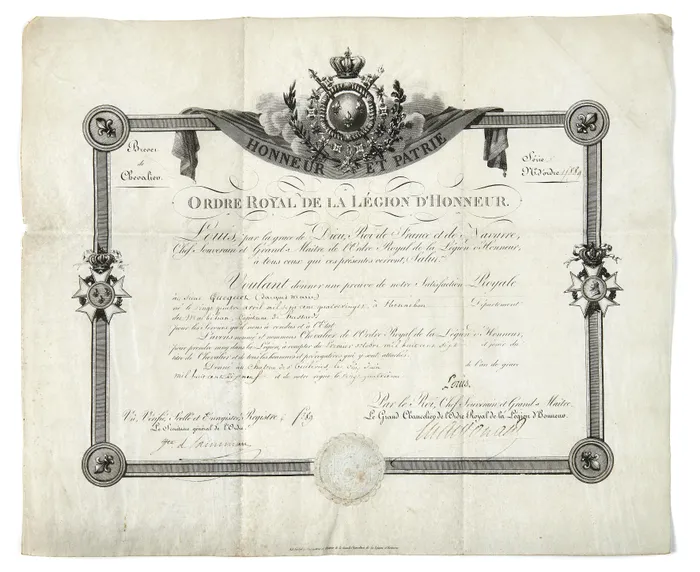 HONNEUR ET PATRIE
Brevet
de
Chevalier.
Série
N.º d'ordre
ORDRE ROYAL DE LA LÉGION D'HONNEUR.
Louis, par la grace de Dieu, Roi de France et de Navarre,
Chef Souverain et Grand-Maître de l'Ordre Royal de la Légion d'Honneur,
à tous ceux qui ces présentes verront, Salut.
Voulant donner une preuve de notre Satisfaction Royale
au Sieur (Jacques Marie)
né le vingt quatre avril mil sept cent quatre vingt, à Département
du Morbihan, Capitaine de
pour les Services qu'il nous a rendus et à l'État
L'avons nommé et nommons Chevalier de l'Ordre Royal de la Légion d'Honneur,
pour prendre rang dans la Légion, à compter du premier octobre mil huit cent sept et jouir du
titre de Chevalier et de tous les honneurs et prérogatives qui y sont attachés.
Donné au château des Tuileries le dix Juin de l'an de grace
mil huit cent dix neuf et de notre règne le vingt quatrième
Louis.
Par le Roi, Chef Souverain et Grand-Maître.
Vu, Vérifié, Scellé et Enregistré, Registre
Le Grand Chancelier de l'Ordre Royal de la Légion d'Honneur.
Le Secrétaire général de l'Ordre
Macdonald